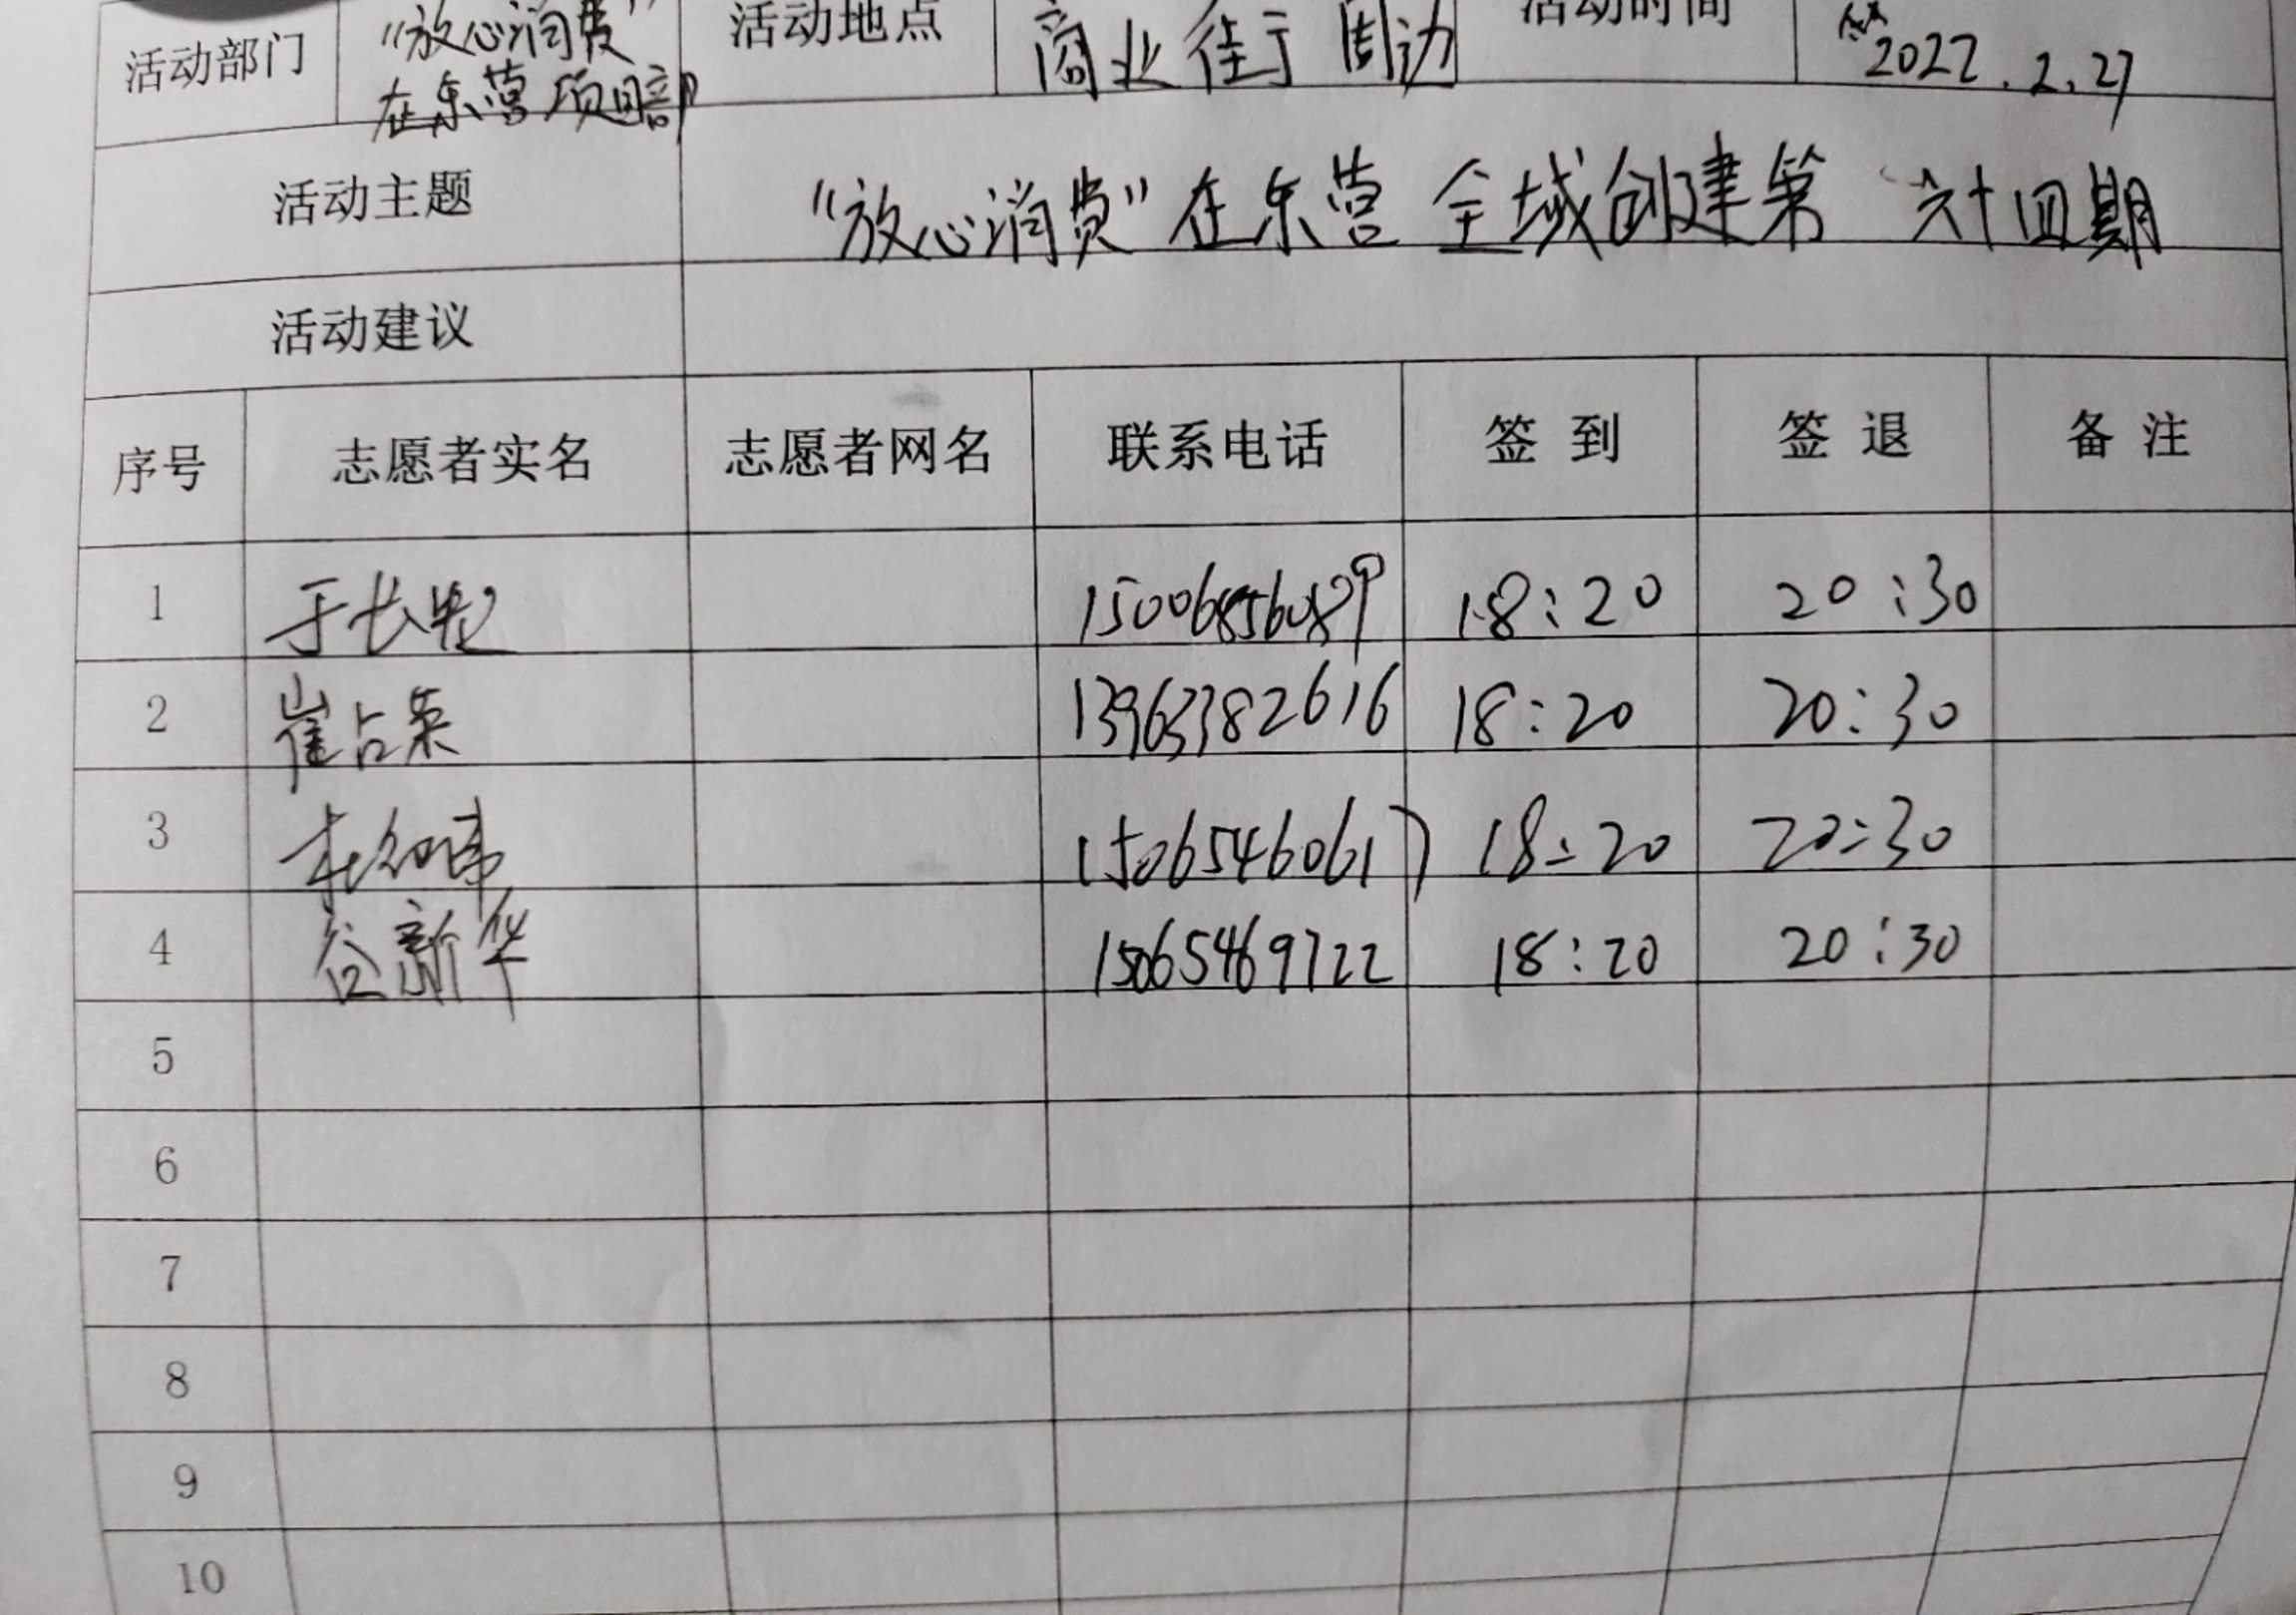 活动部门 "放心消费" 在东营项目部 活动地点 商业街周边 活动时间 2022.2.27
活动主题 "放心消费"在东营 全域创建第 六十四期
活动建议
序号 志愿者实名 志愿者网名 联系电话 签到 签退 备注
1 于长 18:20 20:30
2 崔占 13963382616 18:20 20:30
3 15065460617 18:20 20:30
4 谷新华 15065469722 18:20 20:30
5
6
7
8
9
10